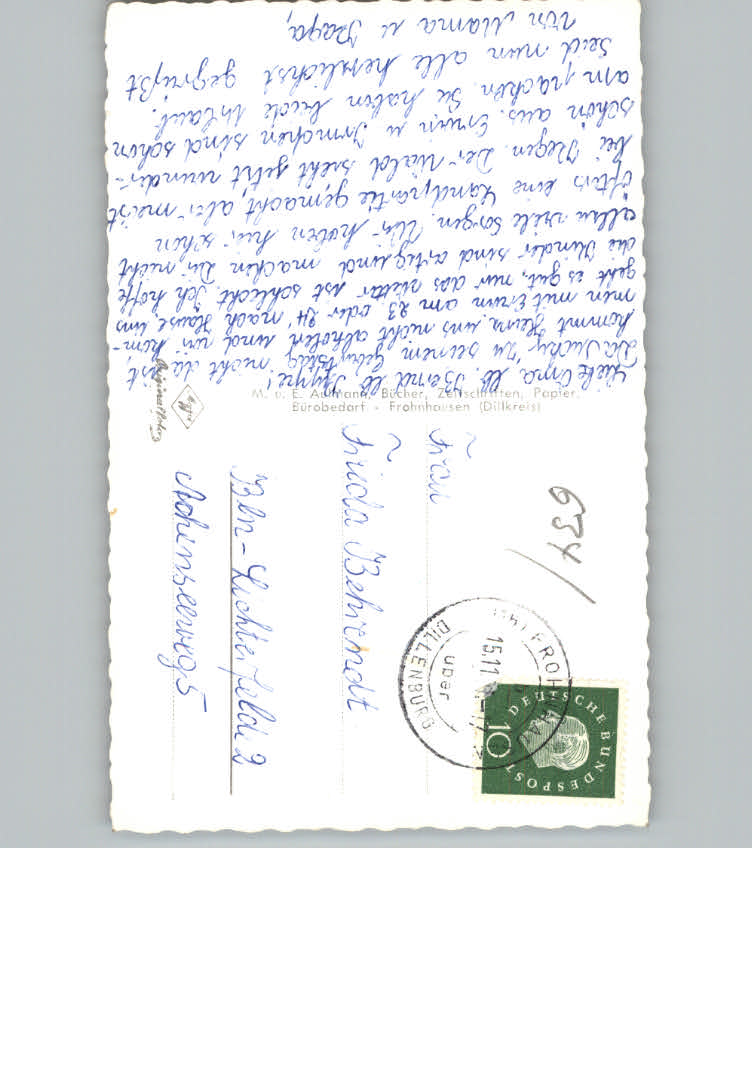 Liebe Oma, lb. Bärbel lb. Puppe!
Da Jucky zu seinem Geburtstag nicht da ist,
kommt Heinz uns nicht abholen und wir kom-
men mit Erwin am 23 oder 24, nach Hause, uns
geht es gut, nur das Wetter ist schlecht. Ich hoffe
die Kinder sind artig und machen Dir nicht
allzu viele Sorgen. Wir haben hier schon
öfters eine Landpartie gemacht, aber meist
bei Regen. Der Wald sieht jetzt wunder-
schön aus. Erwin u Irmchen sind schon
am packen. Sie haben beide Urlaub.
Seid nun alle herzlichst gegrüßt
von Mama u Papa,
M. u. E. Aulmann, Bücher, Zeitschriften, Papier,
Bürobedarf - Frohnhausen (Dillkreis)
Frau
Frieda Behrendt
Bln-Lichterfelde 2
634/
FROHNHAU
über
DILLENBURG
15.11
DEUTSCHE BUNDESPOST
10